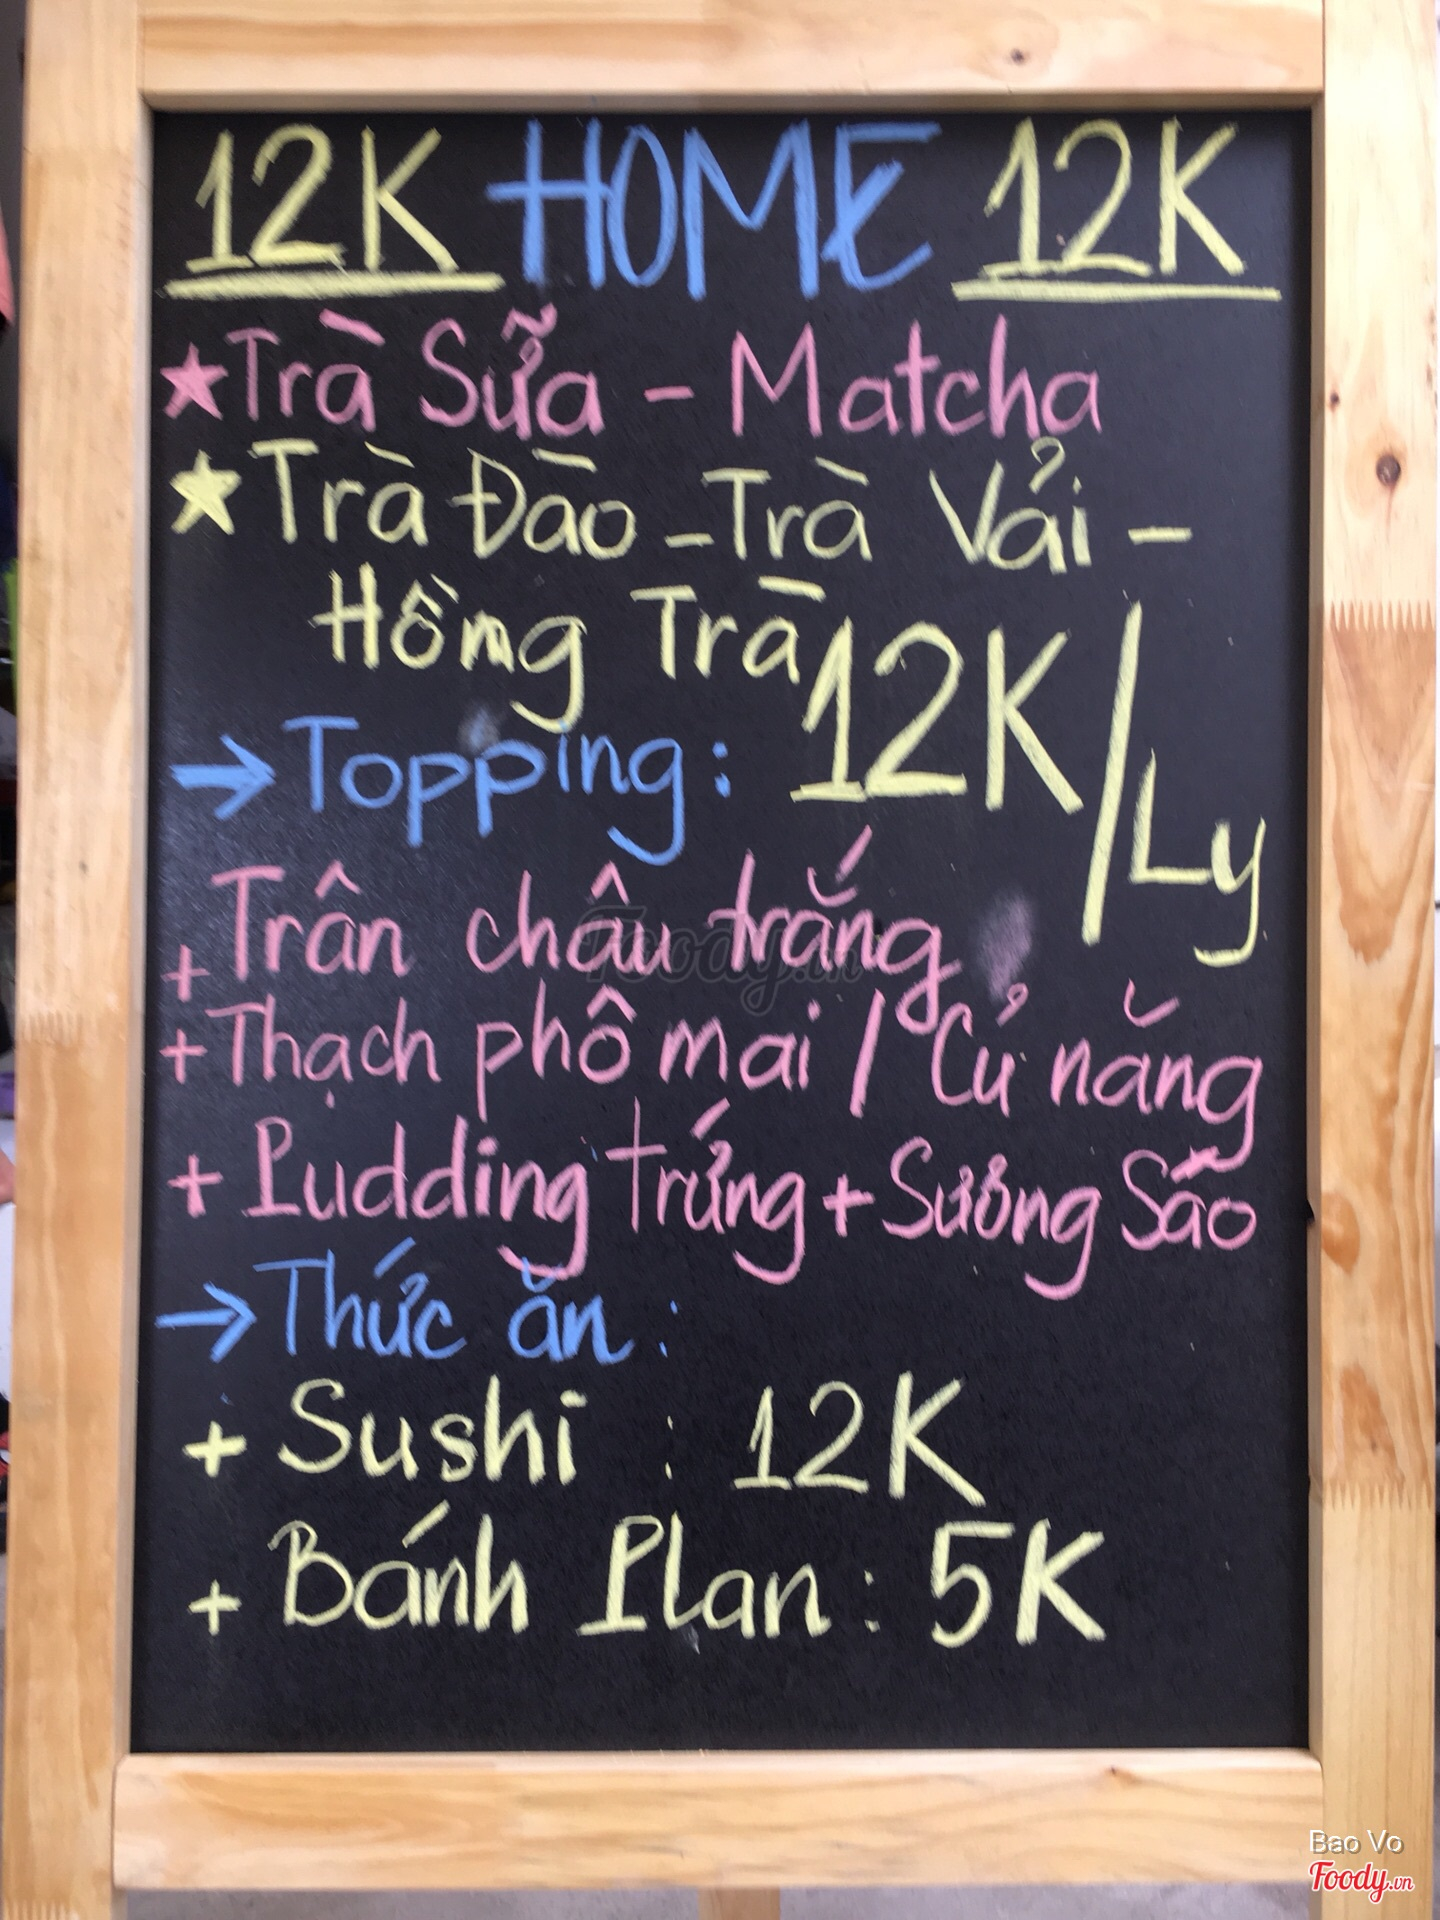 12K HOME 12K
★ Trà Sữa - Matcha
★ Trà Đào - Trà Vải -
Hồng Trà
12K/Ly
→ Topping:
+ Trân châu trắng
+ Thạch phô mai / Củ năng
+ Pudding trứng + Sương Sáo
→ Thức ăn:
+ Sushi : 12K
+ Bánh Plan : 5K
Foody.vn
Bao Vo
Foody.vn